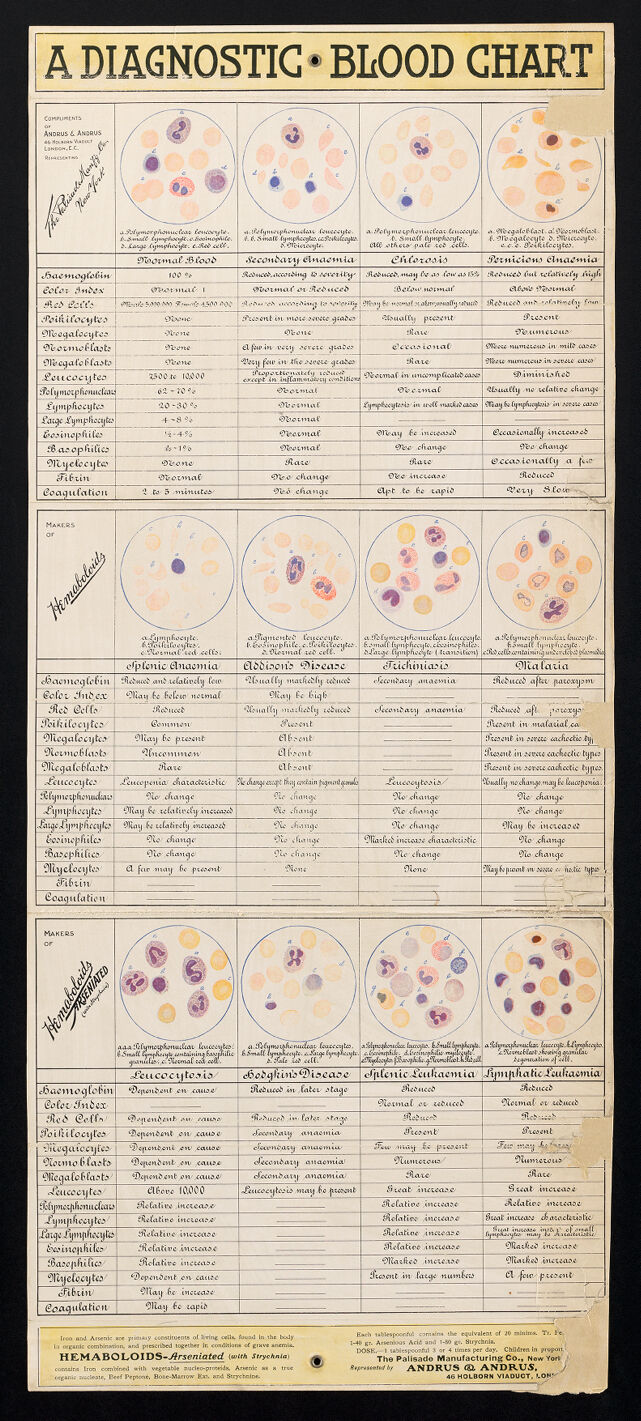 A DIAGNOSTIC • BLOOD CHART
COMPLIMENTS
OF
ANDRUS & ANDRUS
46 HOLBORN VIADUCT
LONDON, E.C.
REPRESENTING
The Palisade Manfg Co.
New York
a. Polymorphonuclear leucocyte.
b. Small lymphocyte. c. Eosinophile.
d. Large lymphocyte. e. Red cell.
a. Polymorphonuclear leucocyte.
b. b. Small lymphocytes. c. c. Poikilocyte.
d. Microcyte.
a. Polymorphonuclear leucocyte.
b. Small lymphocyte.
All others pale red cells.
a. Megaloblast. a! Normoblast.
b. Megalocyte. d. Microcyte.
c. c. c. Poikilocytes.
Normal Blood Secondary Anaemia Chlorosis Pernicious Anaemia
Haemoglobin 100 % Reduced, according to severity Reduced, may be as low as 15% Reduced but relatively high
Color Index Normal 1 Normal or Reduced Below normal Above Normal
Red Cells Male 5,000,000 Female 4,500,000 Reduced according to severity May be normal or often equally reduced Reduced and relatively low
Poikilocytes None Present in more severe grades Usually present Present
Megalocytes None None Rare Numerous
Normoblasts None A few in very severe grades Occasional More numerous in mild cases
Megaloblasts None Very few in the severe grades Rare More numerous in severe cases
Leucocytes 7500 to 10,000 Proportionately reduced except in inflammatory conditions Normal in uncomplicated cases Diminished
Polymorphonuclears 62 - 70 % Normal Normal Usually no relative change
Lymphocytes 20 - 30 % Normal Lymphocytosis in well marked cases May be lymphocytosis in severe cases
Large Lymphocytes 4 - 8 % Normal
Eosinophiles ½ - 4 % Normal May be increased Occasionally increased
Basophilics Normal No change No change
Myelocytes None Rare Rare Occasionally a few
Fibrin Normal No change No increase Reduced
Coagulation 2 to 5 minutes No change Apt to be rapid Very Slow
MAKERS
OF
Hemaboloids
a. Lymphocyte.
b. Poikilocytes.
c. Normal red cells.
a. Pigmented leucocyte.
b. Eosinophile. c. Poikilocytes.
d. Normal red cell.
a. Polymorphonuclear leucocyte.
b. Small lymphocyte. c. eosinophiles.
d. Large lymphocyte (transition)
a. Polymorphonuclear leucocyte.
b. Small lymphocyte.
c. Red cells containing undeveloped plasmodia
Splenic Anaemia Addison's Disease Trichiniasis Malaria
Haemoglobin Reduced and relatively low Usually markedly reduced Secondary anaemia Reduced after paroxysm
Color Index May be below normal May be high
Red Cells Reduced Usually markedly reduced Secondary anaemia Reduced aft paroxys
Poikilocytes Common Present Present in malarial ca
Megalocytes May be present Absent Present in severe cachectic typ
Normoblasts Uncommon Absent Present in severe cachectic types
Megaloblasts Rare Absent Present in severe cachectic types
Leucocytes Leucopenia characteristic No change except they contain pigment granules Leucocytosis Usually no change, may be leucopenia
Polymorphonuclears No change No change No change No change
Lymphocytes May be relatively increased No change No change No change
Large Lymphocytes May be relatively increased No change No change May be increased
Eosinophiles No change No change Marked increase characteristic No change
Basophilics No change No change No change No change
Myelocytes A few may be present None None May be present in severe cachectic types
Fibrin
Coagulation
MAKERS
OF
Hemaboloids
ARSENIATED
(with Strychnia)
a. a. a. Polymorphonuclear leucocytes.
b. Small lymphocyte containing basophilic
granules. c. Normal red cell.
a. Polymorphonuclear leucocytes.
b. Small lymphocyte. c. Large lymphocyte.
d. Pale red cell.
a. Polymorphonuclear leucocyte. b. Small lymphocyte.
c. Eosinophile. d. Eosinophilic myelocyte.
e. Myelocyte. f. Basophile. g. Normoblast. h. Red cell
a. Polymorphonuclear leucocyte. b. Lymphocytes.
c. Normoblast showing granular
degeneration of cell.
Leucocytosis Hodgkin's Disease Splenic Leukaemia Lymphatic Leukaemia
Haemoglobin Dependent on cause Reduced in later stage Reduced Reduced
Color Index Normal or reduced Normal or reduced
Red Cells Dependent on cause Reduced in later stage Reduced Reduced
Poikilocytes Dependent on cause Secondary anaemia Present Present
Megalocytes Dependent on cause Secondary anaemia Few may be present Few may be presen
Normoblasts Dependent on cause Secondary anaemia Numerous Numerous
Megaloblasts Dependent on cause Secondary anaemia Rare Rare
Leucocytes Above 10,000 Leucocytosis may be present Great increase Great increase
Polymorphonuclears Relative increase Relative increase Relative increase
Lymphocytes Relative increase Relative increase Great increase characteristic
Large Lymphocytes Relative increase Relative increase Great increase inst of small lymphocytes may be characteristic
Eosinophiles Relative increase Relative increase Marked increase
Basophilics Relative increase Marked increase Marked increase
Myelocytes Dependent on cause Present in large numbers A few present
Fibrin May be increase
Coagulation May be rapid
Iron and Arsenic are primary constituents of living cells, found in the body
in organic combination, and prescribed together in conditions of grave anemia.
HEMABOLOIDS-Arseniated (with Strychnia)
contains Iron combined with vegetable nucleo-proteids, Arsenic as a true
organic nucleate, Beef Peptone, Bone-Marrow Ext. and Strychnine.
Each tablespoonful contains the equivalent of 20 minims. Tr. Fe
1-40 gr. Arsenious Acid and 1-80 gr. Strychnia.
DOSE.—1 tablespoonful 3 or 4 times per day. Children in propor
The Palisade Manufacturing Co., New York
Represented by ANDRUS & ANDRUS,
46 HOLBORN VIADUCT, LON